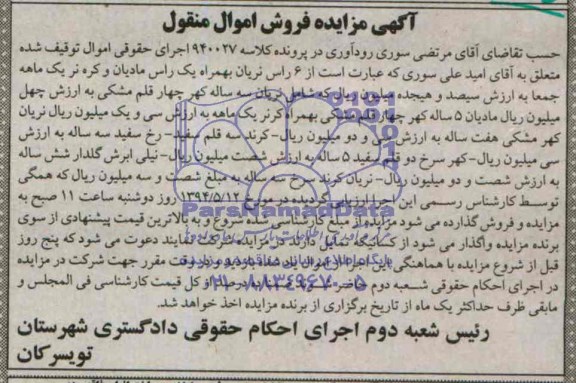 آگهی مزایده فروش اموال منقول
حسب تقاضای آقای مرتضی سوری رودآوری در پرونده کلاسه ۹۴۰۰۲۷ اجرای حقوقی اموال توقیف شده
متعلق به آقای امید علی سوری که عبارت است از ۶ راس نریان بهمراه یک راس مادیان و کره نر یک ماهه
جمعا به ارزش سیصد و هیجده میلیون ریال که شامل نریان سه ساله کهر چهار قلم مشکی به ارزش چهل
میلیون ریال مادیان ۵ ساله کهر چهار قلم مشکی بهمراه کره نر یک ماهه به ارزش سی و یک میلیون ریال نریان
کهر مشکی هفت ساله به ارزش سی و دو میلیون ریال- کرند سه قلم سفید- رخ سفید سه ساله به ارزش
سی میلیون ریال- کهر سرخ دو قلم سفید ۵ ساله به ارزش شصت میلیون ریال- نیلی ابرش گلدار شش ساله
به ارزش شصت و دو میلیون ریال- نریان کرند سرخ سه ساله به مبلغ شصت و سه میلیون ریال که همگی
توسط کارشناس رسمی این اجرا ارزیابی گردیده در مورخ ۱۳۹۴/۵/۱۲ روز دوشنبه ساعت ۱۱ صبح به
مزایده و فروش گذارده می شود مزایده از مبلغ کارشناسی شده شروع و به بالاترین قیمت پیشنهادی از سوی
برنده مزایده واگذار می شود از کسانیکه تمایل دارند در مزایده شرکت نمایند دعوت می شود که پنج روز
قبل از شروع مزایده با هماهنگی این اجرا از اموال یاد شده بازدید و در وقت مقرر جهت شرکت در مزایده
در اجرای احکام حقوقی شعبه دوم حاضر شوند ده درصد از کل قیمت کارشناسی فی المجلس و
مابقی ظرف حداکثر یک ماه از تاریخ برگزاری از برنده مزایده اخذ خواهد شد.
رئیس شعبه دوم اجرای احکام حقوقی دادگستری شهرستان
تویسرکان
ParsNamadData
۰۲۱-۸۸۳۴۹۶۷۰-۵